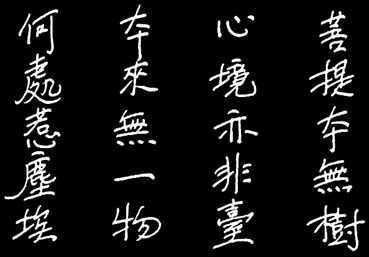 菩提本無樹
心境亦非臺
本來無一物
何處惹塵埃